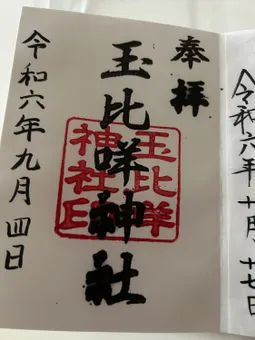 奉拝
玉比咩神社
玉比咩
神社印
令和六年九月四日
令和六年十月十七日